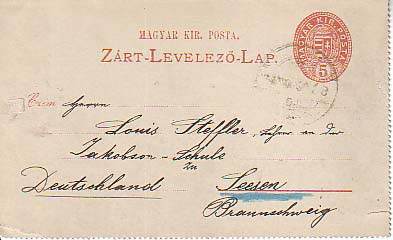 MAGYAR KIR. POSTA.
ZÁRT-LEVELEZŐ-LAP.
MAGYAR KIR. POSTA
5
Czím
Herrn
Louis Steffler, Lehrer an der
Jakobson-Schule
zu
Deutschland Seesen
Braunschweig